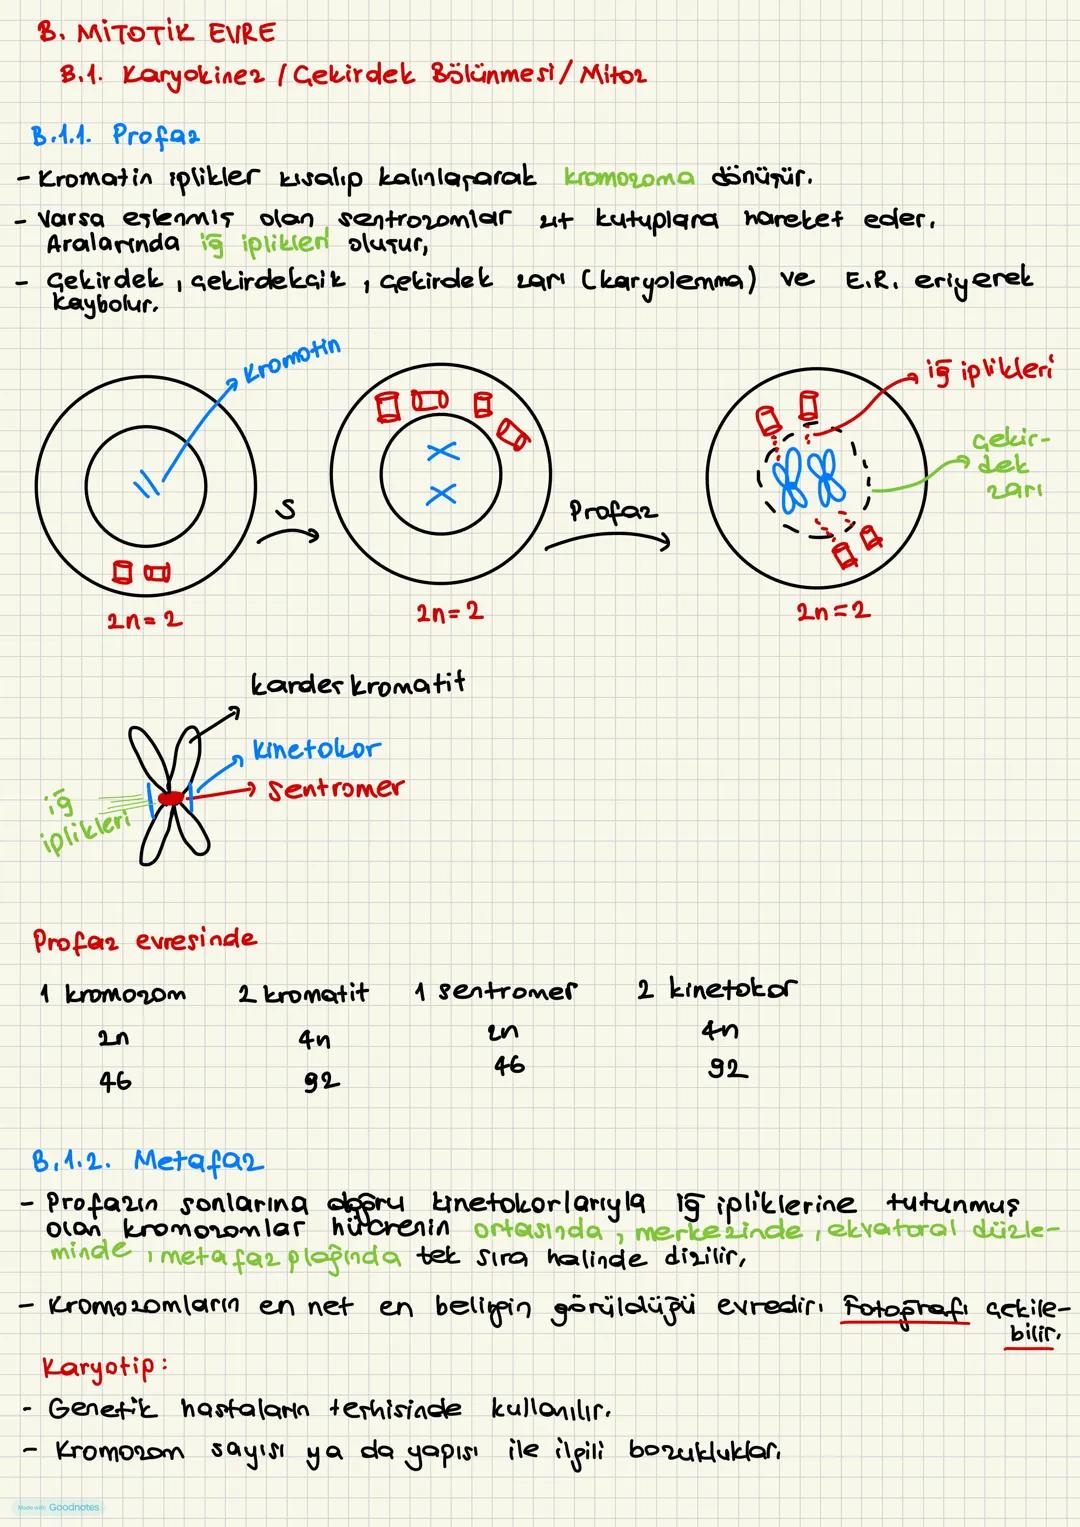 B. MİTOTİK EVRE
B.1. Karyokinez / Çekirdek Bölünmesi / Mitoz
B.1.1. Profaz
- Kromatin iplikler kısalıp kalınlaşarak kromozoma dönüşür.
- Varsa eşlenmiş olan sentrozomlar zıt kutuplara hareket eder.
Aralarında iğ iplikleri oluşur,
- Çekirdek, çekirdekçik, çekirdek zarı (karyolemma) ve E.R. eriyerek
kaybolur.
kromotin
iğ iplikleri
çekir-
dek
zarı
S
Profaz
2n=2
2n=2
2n=2
kardeş kromatit
kinetokor
sentromer
iğ
iplikleri
Profaz evresinde
1 kromozom 2 kromatit 1 sentromer 2 kinetokor
2n 4n 2n 4n
46 92 46 92
B.1.2. Metafaz
- Profazın sonlarına doğru kinetokorlarıyla iğ ipliklerine tutunmuş
olan kromozomlar hücrenin ortasında, merkezinde, ekvatoral düzle-
minde, metafaz plağında tek sıra halinde dizilir,
- Kromozomların en net en belirgin görüldüğü evredir. Fotoğrafı çekile-
bilir.
Karyotip:
- Genetik hastaların teşhisinde kullanılır.
- Kromozom sayısı ya da yapısı ile ilgili bozukluklar.
Made with Goodnotes